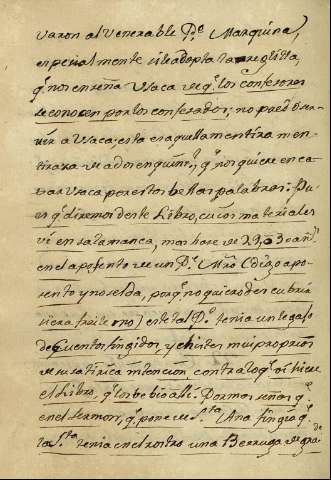 varon al Venerable P.e Marquina,
especialmente si le adopta la reglilla,
q.e nos enseña Vaca de q.e los confesores
se conocen por los confesados; no podrá
a Vaca; esta es aquella mentira men
q.e nos quiere en ca
Vaca por estos bellas palabras. Pu
es q.e diremos de este Libro, cuios materiales
vi en salamanca, mas hace de 2 años
en el aposento de un P.e Mro. (digo apo
sento y no selda, porq.e no quiero descubrir
si era fraile o no) este tal P.e tenia un legajo
de Cuentos fingidos, y chistes mui proprios
de su satirica intencion contra los q.e
el Libro, q.e los bebio alli. Dormos señor q.e
en el sermon, q.e pone de S.ta Ana fingio q.e
la S.ta tenia en el rostro una Berruga de gra